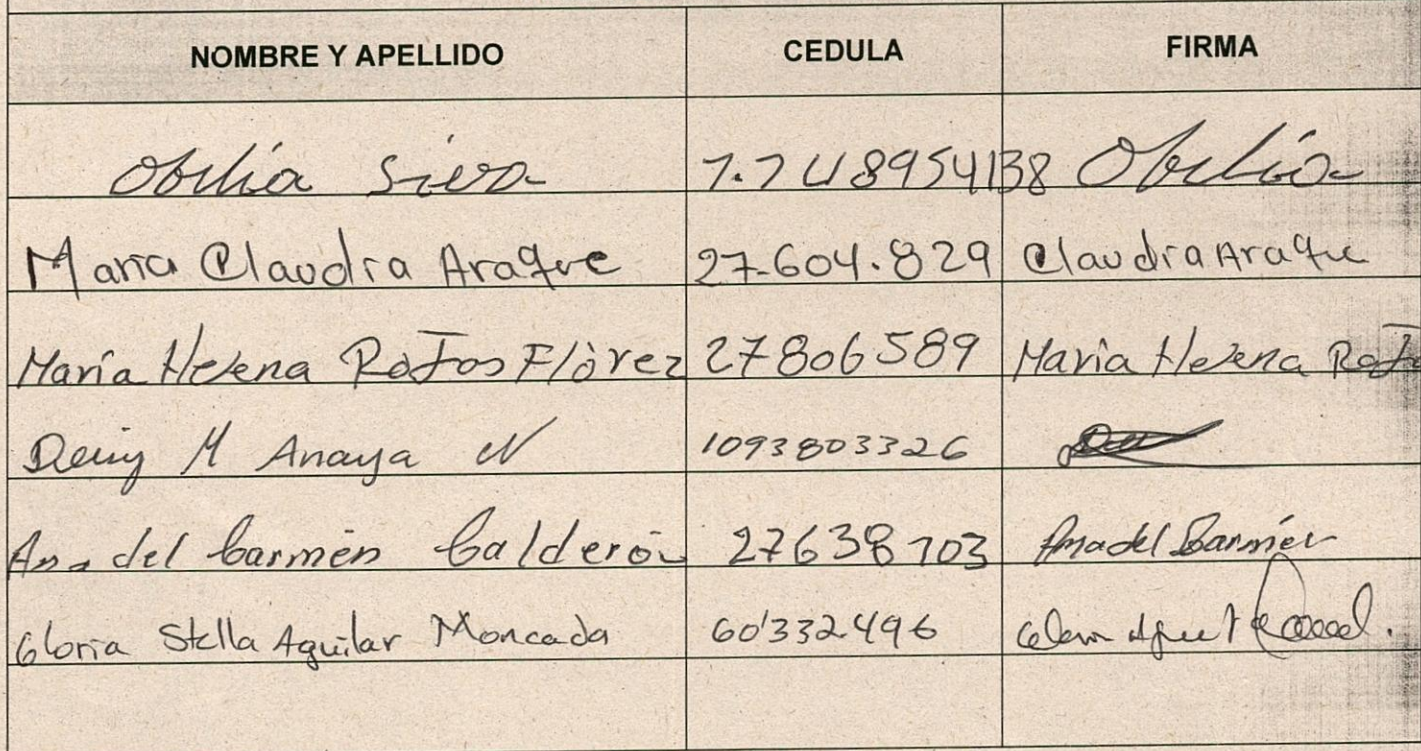 NOMBRE Y APELLIDO CEDULA FIRMA
Obelia Siera Obelia
Maria Claudia Araque 27.604.829 Claudia Araque
María Helena Rojas Flórez 27806589 María Helena Roja
Deisy M Anaya N 1093803326
Ana del Carmen Calderón 27638703 Ana del Carmen
Gloria Stella Aguilar Moncada 60332496